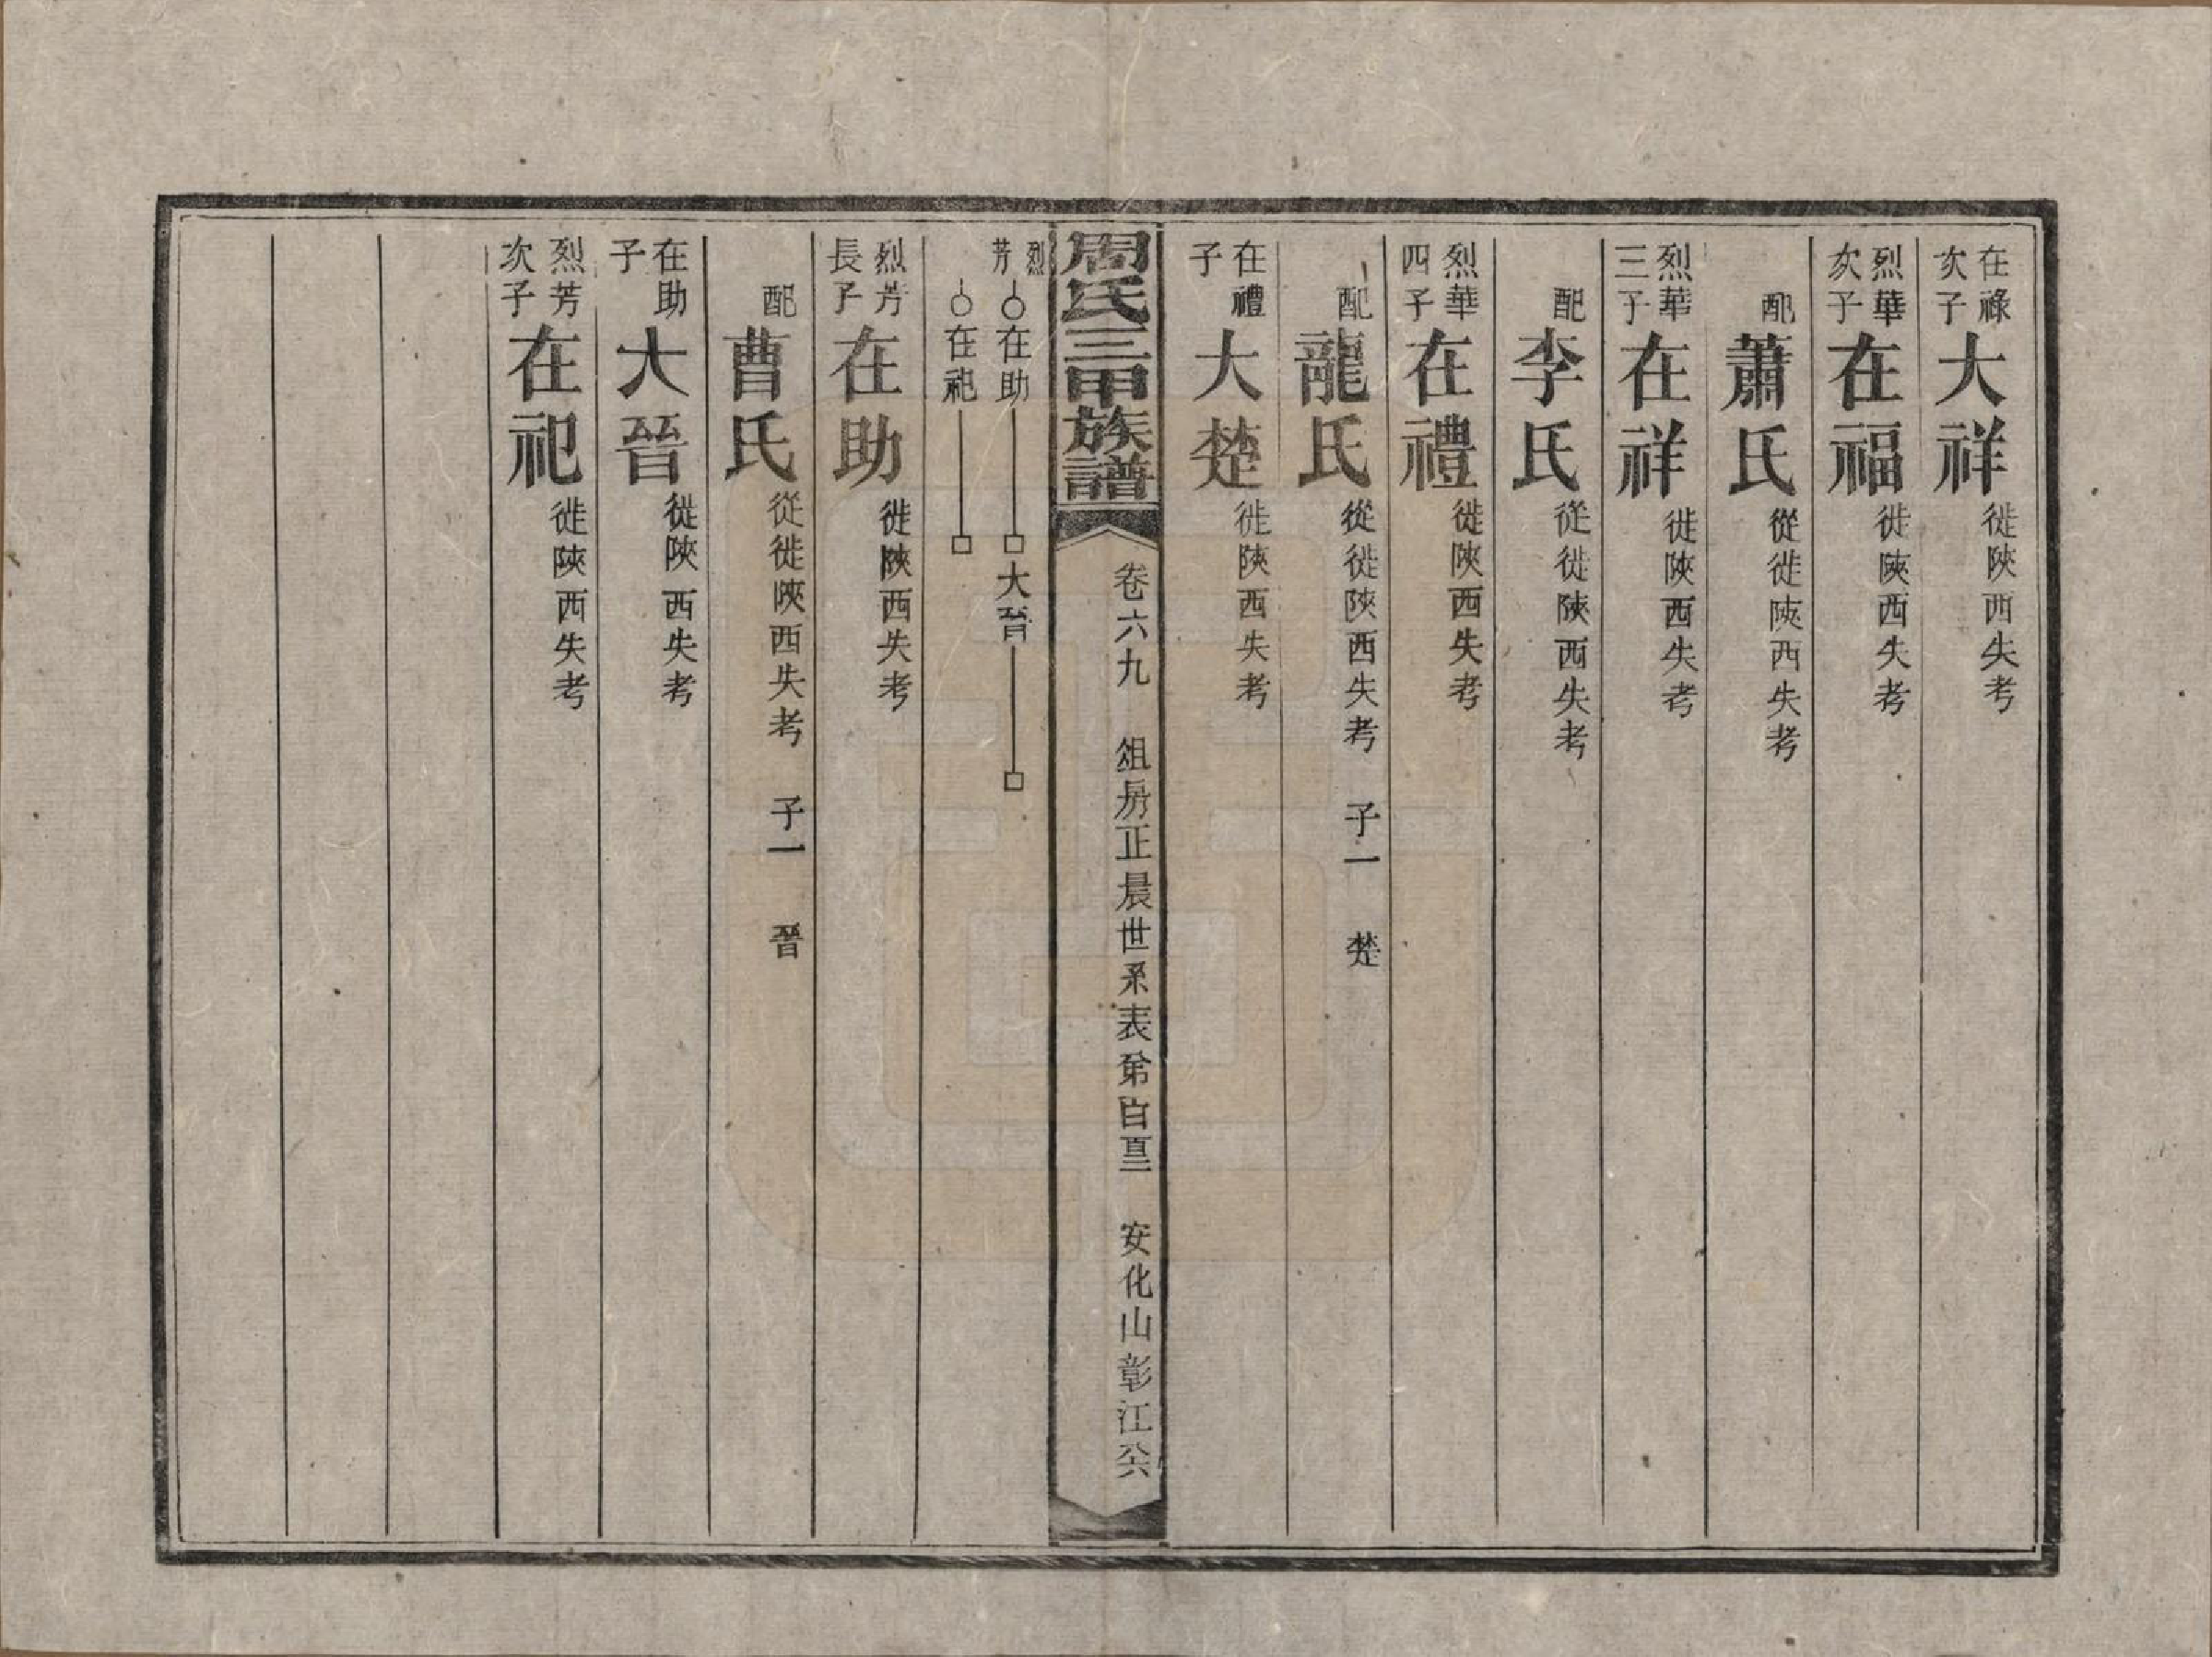 在祿次子大祥徙陝西失考
烈華次子在福徙陝西失考
配蕭氏從徙陝西失考
烈華三子在祥徙陝西失考
配李氏從徙陝西失考
烈華四子在禮徙陝西失考
配龍氏從徙陝西失考 子一 楚
在禮子大楚徙陝西失考
周氏三甲族譜 卷六九 俎房正晨世系表第 安化山彰江
烈芳 在助 大晉
在祀
烈芳長子在助徙陝西失考
配曹氏從徙陝西失考 子一 晉
在助子大晉徙陝西失考
烈芳次子在祀徙陝西失考